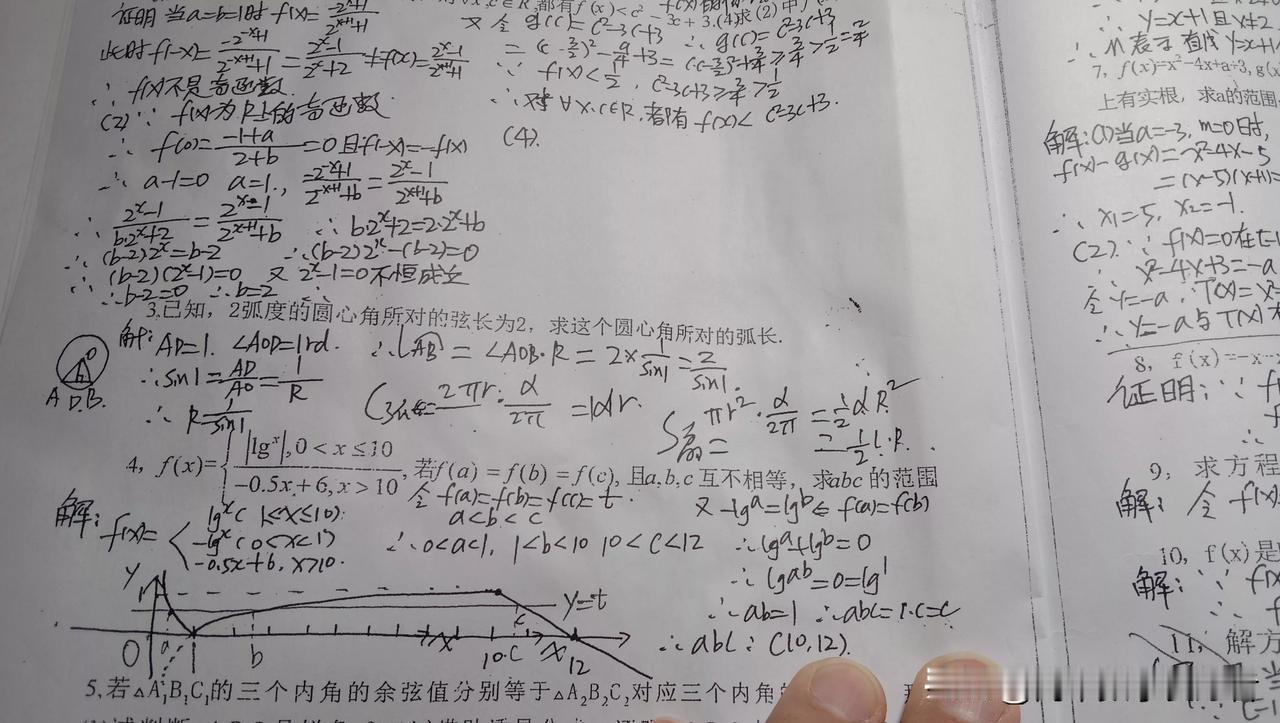 证明 当a=b=1时 f(x)=\frac{-2^x+1}{2^{x+1}+1}
此时f(-x)=\frac{-2^{-x}+1}{2^{-x+1}+1}=\frac{2^x-1}{2^x+2}≠-f(x)=\frac{2^x-1}{2^{x+1}+1}
∴ f(x)不是奇函数.
(2) ∵ f(x)为R上的奇函数
∴ f(0)=\frac{-1+a}{2+b}=0 且f(-x)=-f(x)
∴ a-1=0 a=1., \frac{-2^{-x}+1}{2^{-x+1}+b}=\frac{2^x-1}{2^{x+1}+b}
∴ \frac{2^x-1}{b·2^x+2}=\frac{2^x-1}{2^{x+1}+b} ∴ b·2^x+2=2·2^x+b
∴ (b-2)2^x=b-2 ∴(b-2)2^x-(b-2)=0
∴ (b-2)(2^x-1)=0 又 2^x-1=0不恒成立
∴b-2=0 ∴b=2
都有f(x)<c²-3c+3.(4求(2)中
又令 g(c)=c²-3c+3 ∴ g(c)=c²-3c+3
=(c-\frac{3}{2})²-\frac{9}{4}+3=(c-\frac{3}{2})²+\frac{3}{4}≥\frac{3}{4}>\frac{1}{2}=\frac{2}{4}
∵ f(x)<\frac{1}{2}, c²-3c+3≥\frac{3}{4}>\frac{1}{2}
∴ 对∀x.c∈R,都有 f(x)< c²-3c+3.
(4).
3.已知，2弧度的圆心角所对的弦长为2，求这个圆心角所对的弧长.
解: AD=1. ∠AOD=1rd. ∴|AB|=∠AOB·R=2×\frac{1}{sin1}=\frac{2}{sin1}.
∴sin1=\frac{AD}{AO}=\frac{1}{R}
∴ R=\frac{1}{sin1}
O
A D.B.
=\frac{2πr·α}{2π}=|α|r.
S扇=πr²·\frac{α}{2π}=\frac{1}{2}αR²
=\frac{1}{2}l·R.
4，f(x)={|lg^x|,0<x≤10
-0.5x+6,x>10，若f(a)=f(b)=f(c),且a,b,c互不相等，求abc的范围
解: f(x)={lg^x(1≤x≤10).
-lg^x(0<x<1)
-0.5x+6, x>10.
令f(a)=f(b)=f(c)=t.
a<b<c
∴0<a<1, 1<b<10 10<c<12
又 -lg^a=lg^b⇐f(a)=f(b)
∴lg^a+lg^b=0
∴lg^{ab}=0=lg^1
∴ab=1 ∴abc=1·c=c
∴abc:(10,12).
y
1
y=t
O a 1 b x 10·c x 12
5,若△A₁B₁C₁的三个内角的余弦值分别等于△A₂B₂C₂对应三个内角的
y=x+1且x≠2
∴M表示直线y=x+1
7，f(x)=x²-4x+a+3,g(x)
上有实根，求a的范围
解:(1)当a=-3, m=0时,
f(x)-g(x)=x²-4x-5
=(x-5)(x+1)=
∴ x₁=5, x₂=-1.
(2).∵ f(x)=0在[-1
∴ x²-4x+3=-a
令y=-a,T(x)=x²
∴y=-a与T(x)
8，f(x)=-x
证明: ∵ f
∴
9，求方程
解: 令f(x)
10，f(x)是
解: ∵ f(x)
11，解方